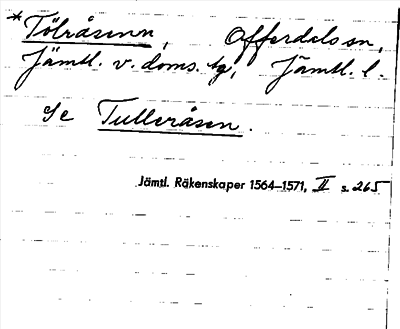 *Tölråsenn, Offerdals sn,
Jämtl. v. doms. tg, Jämtl. l.
Se Tulleråsen.
Jämtl. Räkenskaper 1564–1571, II s. 265